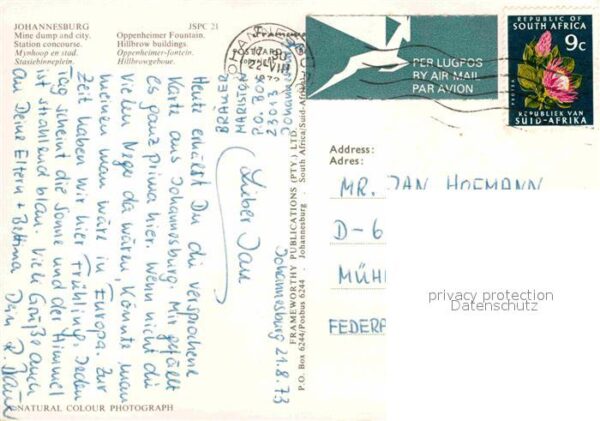 JOHANNESBURG
Mine dump and city.
Station concourse.
Mynhoop en stad.
Stasiebinneplein.
JSPC 21
Oppenheimer Fountain.
Hillbrow buildings.
Oppenheimer-fontein.
Hillbrowgeboue.
POSTCARD
22 VIII
1973
PER LUGPOS
BY AIR MAIL
PAR AVION
REPUBLIC OF
SOUTH AFRICA
9c
PROTEA
REPUBLIEK VAN
SUID-AFRIKA
MARISTON
P.O. BOX
23013
Johannesburg 21.8.73
Lieber Jan
Heute erhälst Du die versprochene
Karte aus Johannesburg. Mir gefällt
es ganz prima hier. Wenn nicht die
vielen Neger da wären könnte man
meinen man wäre in Europa. Zur
Zeit haben wir hier Frühling. Jeden
Tag scheint die Sonne und der Himmel
ist strahlend blau. Viele Grüße auch
an Deine Eltern + Bettina Dein R.
FRAMEWORTHY PUBLICATIONS (PTY.) LTD.
P.O. Box 6244/Posbus 6244 - Johannesburg - South Africa/Suid-Afrika
Address:
Adres:
MR. JAN HOFMANN
D-6
MÜH
FEDERA
privacy protection
Datenschutz
NATURAL COLOUR PHOTOGRAPH